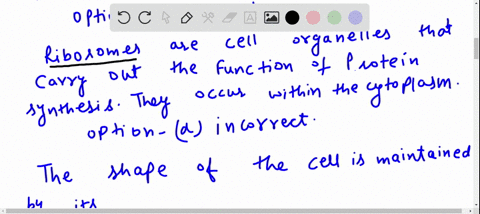 opti
Ribosomes are cell organelles that
carry out the function of Protein
synthesis. They occur within the cytoplasm.
option-(a) incorrect.
The shape of the cell is maintained
by its